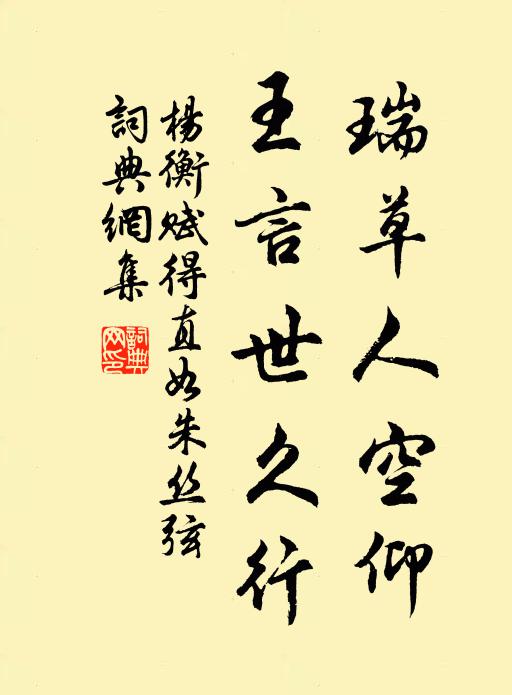 瑞草人空仰
王言世久行
楊衡赋得直如朱丝弦
詞典網集
詞典网印